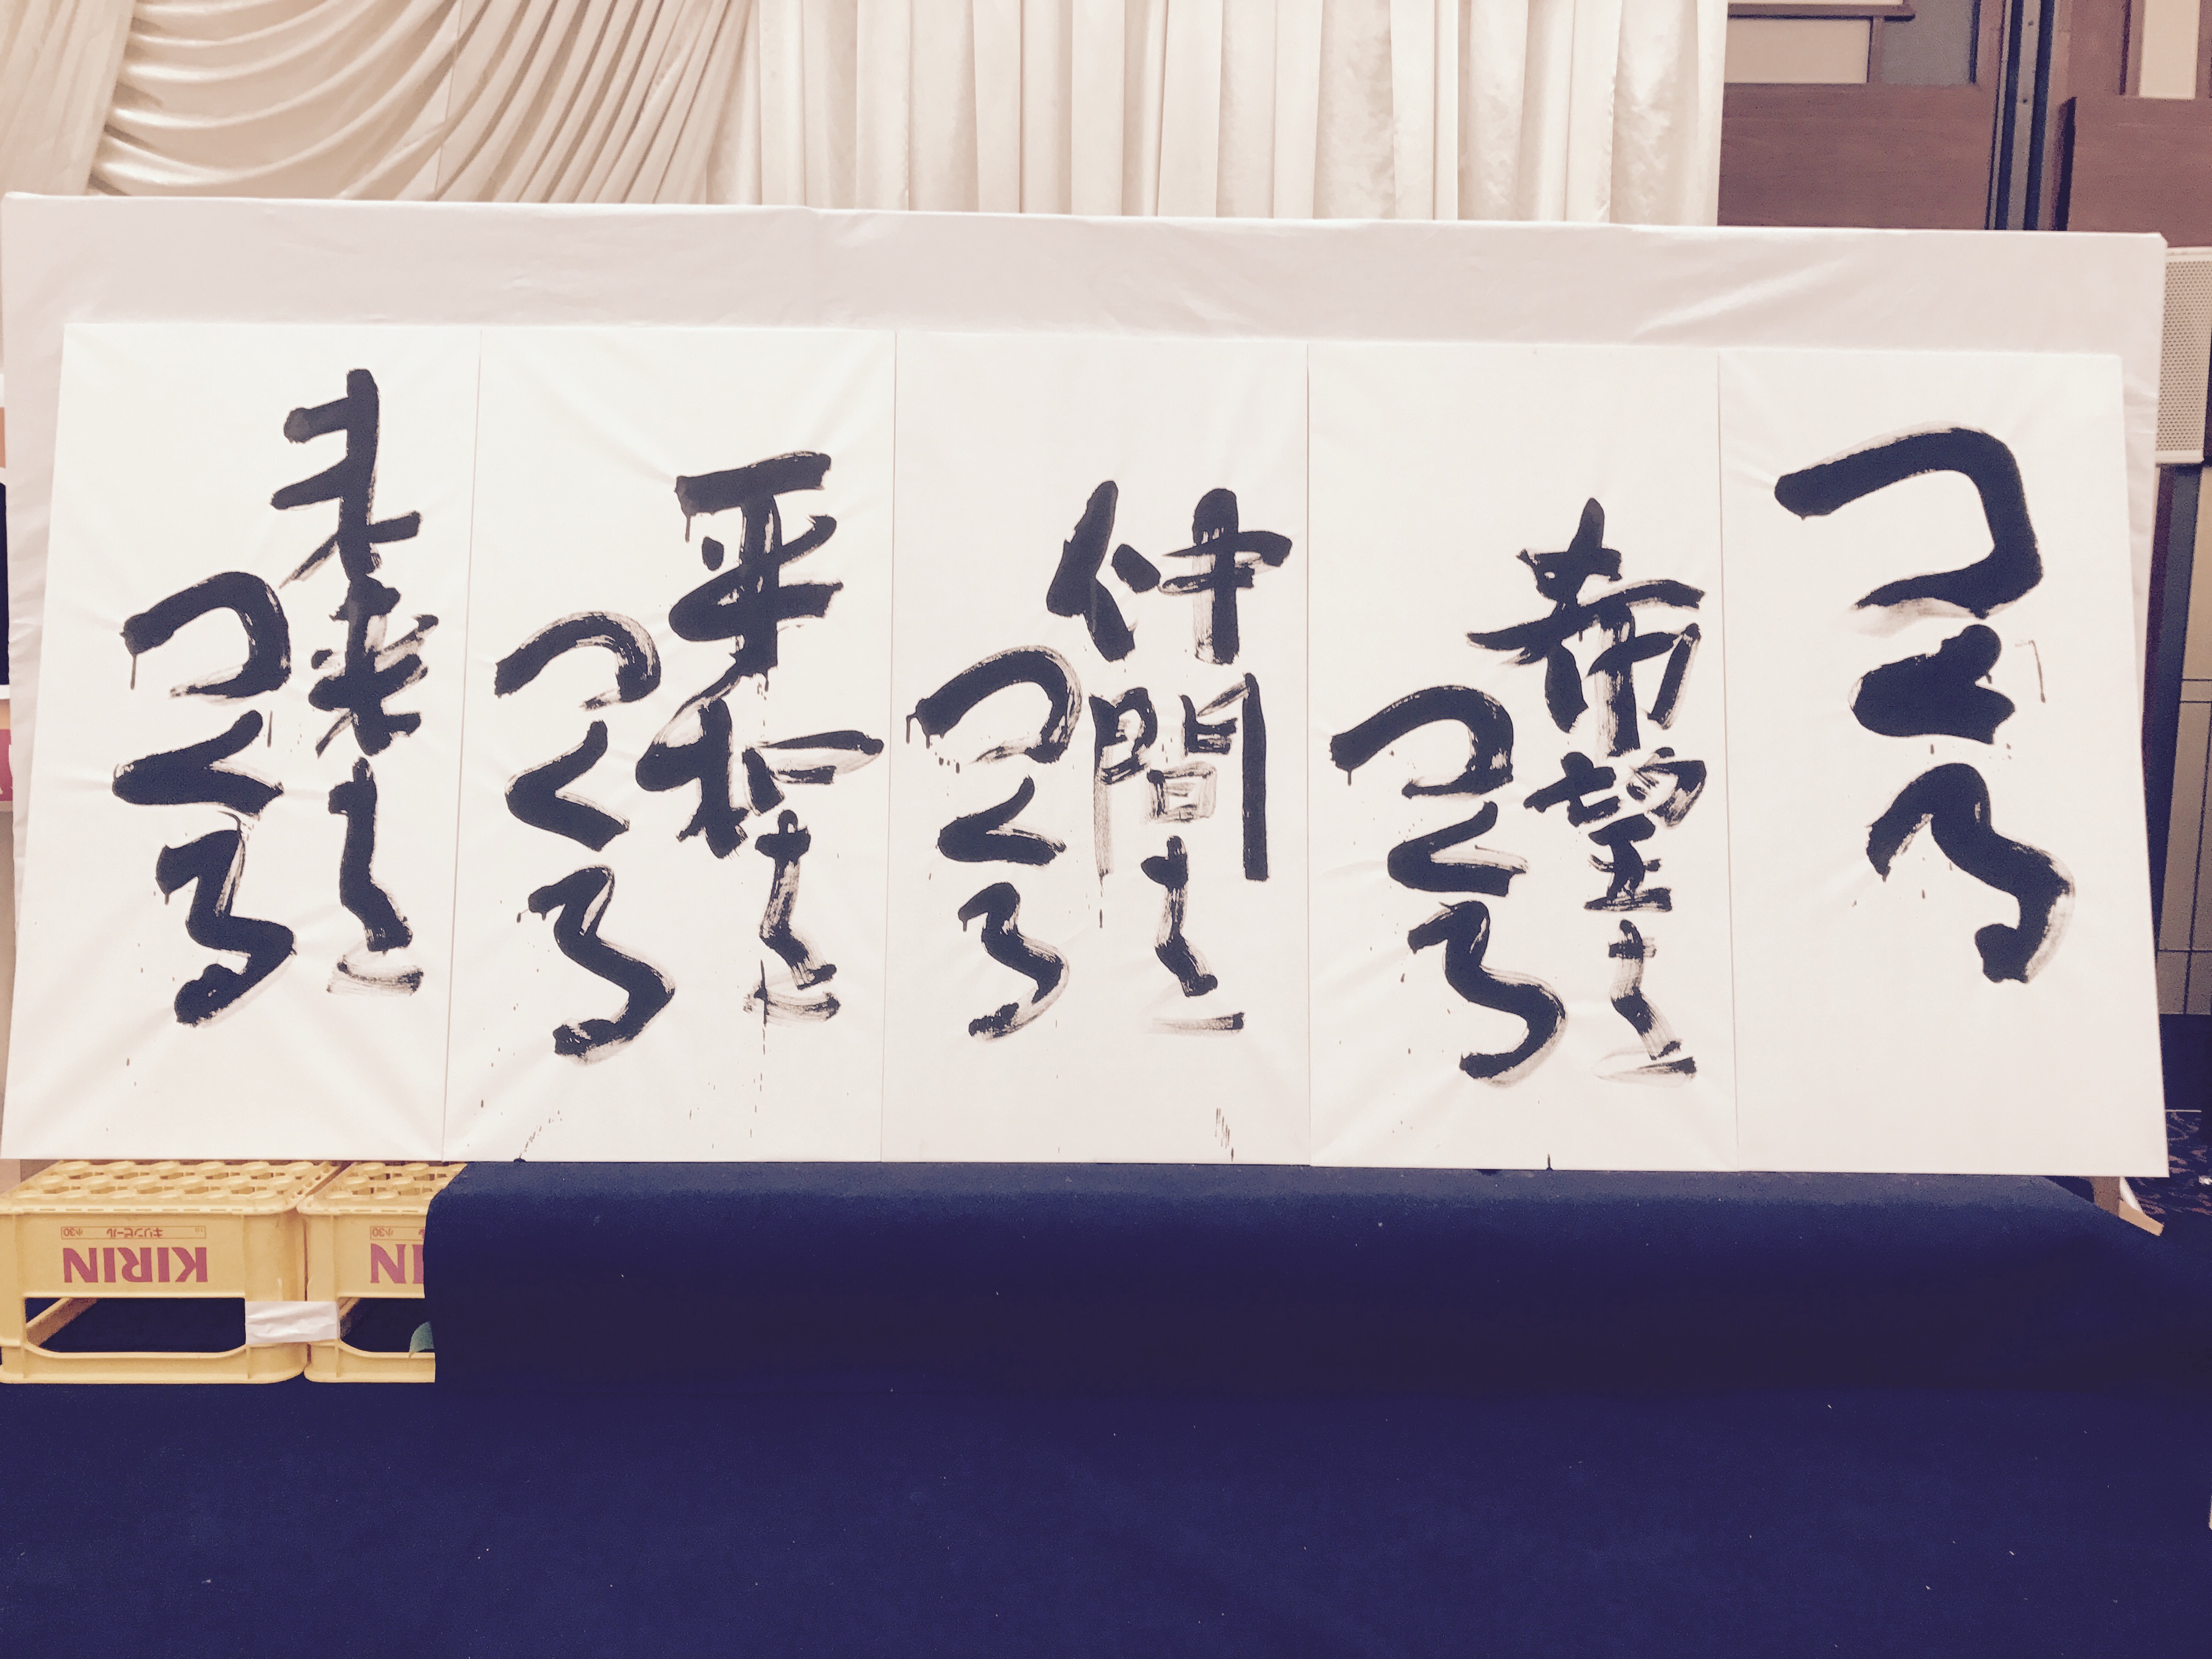 つくる
希望を
つくる
仲間を
つくる
平和を
つくる
未来を
つくる
キリンビール
小30
KIRIN
KI
小30